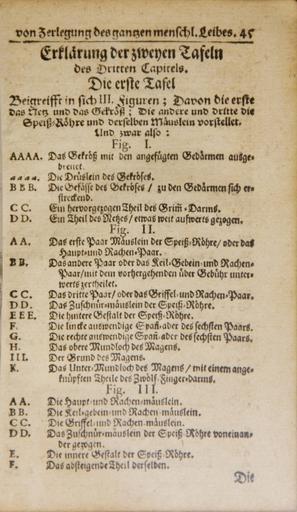 von Zerlegung des gantzen menschl. Leibes. 45
Erklärung der zweyen Tafeln
des Dritten Capitels.
Die erste Tafel
Begreifft in sich III. Figuren; Davon die erste
das Netz und das Gekröß; Die andere und dritte die
Speiß-Röhre und derselben Mäuslein vorstellet.
Und zwar also:
Fig. I.
AAAA. Das Gekröß mit den angefügten Gedärmen ausge-
breitet.
aaaa. Die Drüslein des Gekröses.
BBB. Die Gefässe des Gekröses / zu den Gedärmen sich er-
streckend.
CC. Ein hervorgezogen Theil des Grimm-Darms.
DD. Ein Theil des Netzes / etwas weit aufwerts gezogen.
Fig. II.
AA. Das erste Paar Mäuslein der Speiß-Röhre / oder das
Haupt- und Rachen-Paar.
BB. Das andere Paar oder das Keil-Gebein- und Rachen-
Paar / mit dem vorhergehenden über Gebühr unter-
werts zertheilet.
CC. Das dritte Paar / oder das Griffel- und Rachen-Paar.
DD. Das Zuschnür-mäuslein der Speiß-Röhre.
EEE. Die hintere Gestalt der Speiß-Röhre.
F. Die lincke auswendige Spañ-ader des sechsten Paars.
G. Die rechte auswendige Spañ-ader des sechsten Paars.
H. Das obere Mundloch des Magens.
III. Der Grund des Magens.
K. Das Unter-Mundloch des Magens / mit einem ange-
knüpfften Theile des Zwölf-Finger-darms.
Fig. III.
AA. Die Haupt- und Rachen-mäuslein.
BB. Die Keil-gebein- und Rachen-mäuslein.
CC. Die Griffel- und Rachen-mäuslein.
DD. Das Zuschnür-mäuslein der Speiß-Röhre voneinan-
der gezogen.
E. Die innere Gestalt der Speiß-Röhre.
F. Das absteigende Theil derselben.
Die